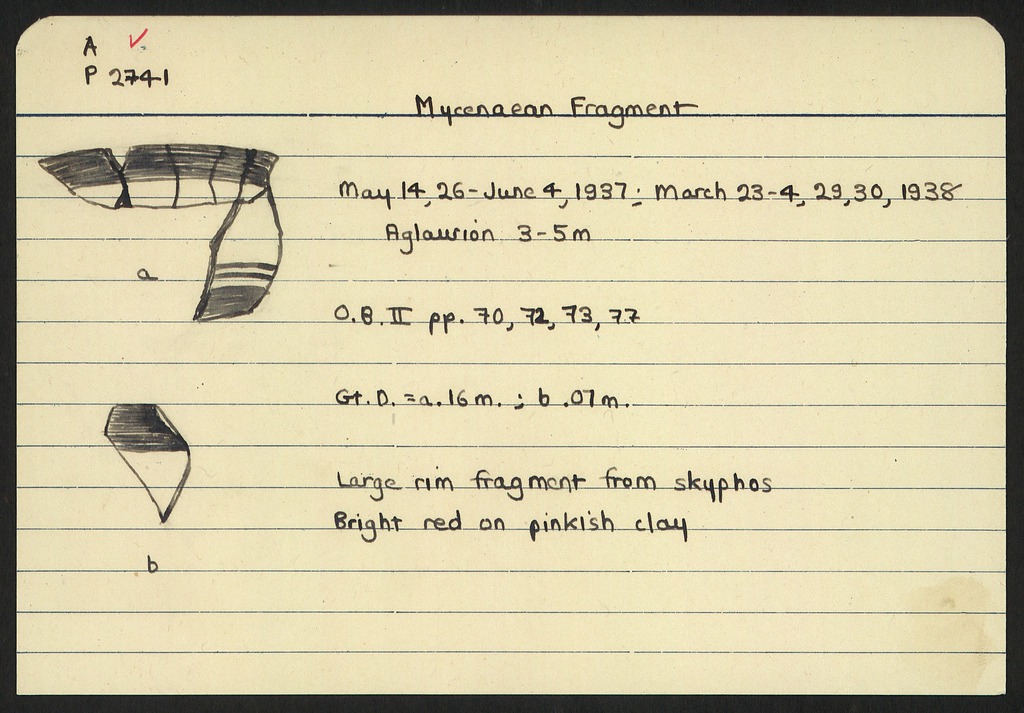 A
P 2741
Mycenaean Fragment
May 14, 26-June 4, 1937; March 23-4, 29, 30, 1938
Aglaurion 3-5m
O.B. II pp. 70, 72, 73, 77
Gt. D. = a .16 m. ; b .07 m.
Large rim fragment from skyphos
Bright red on pinkish clay
a
b